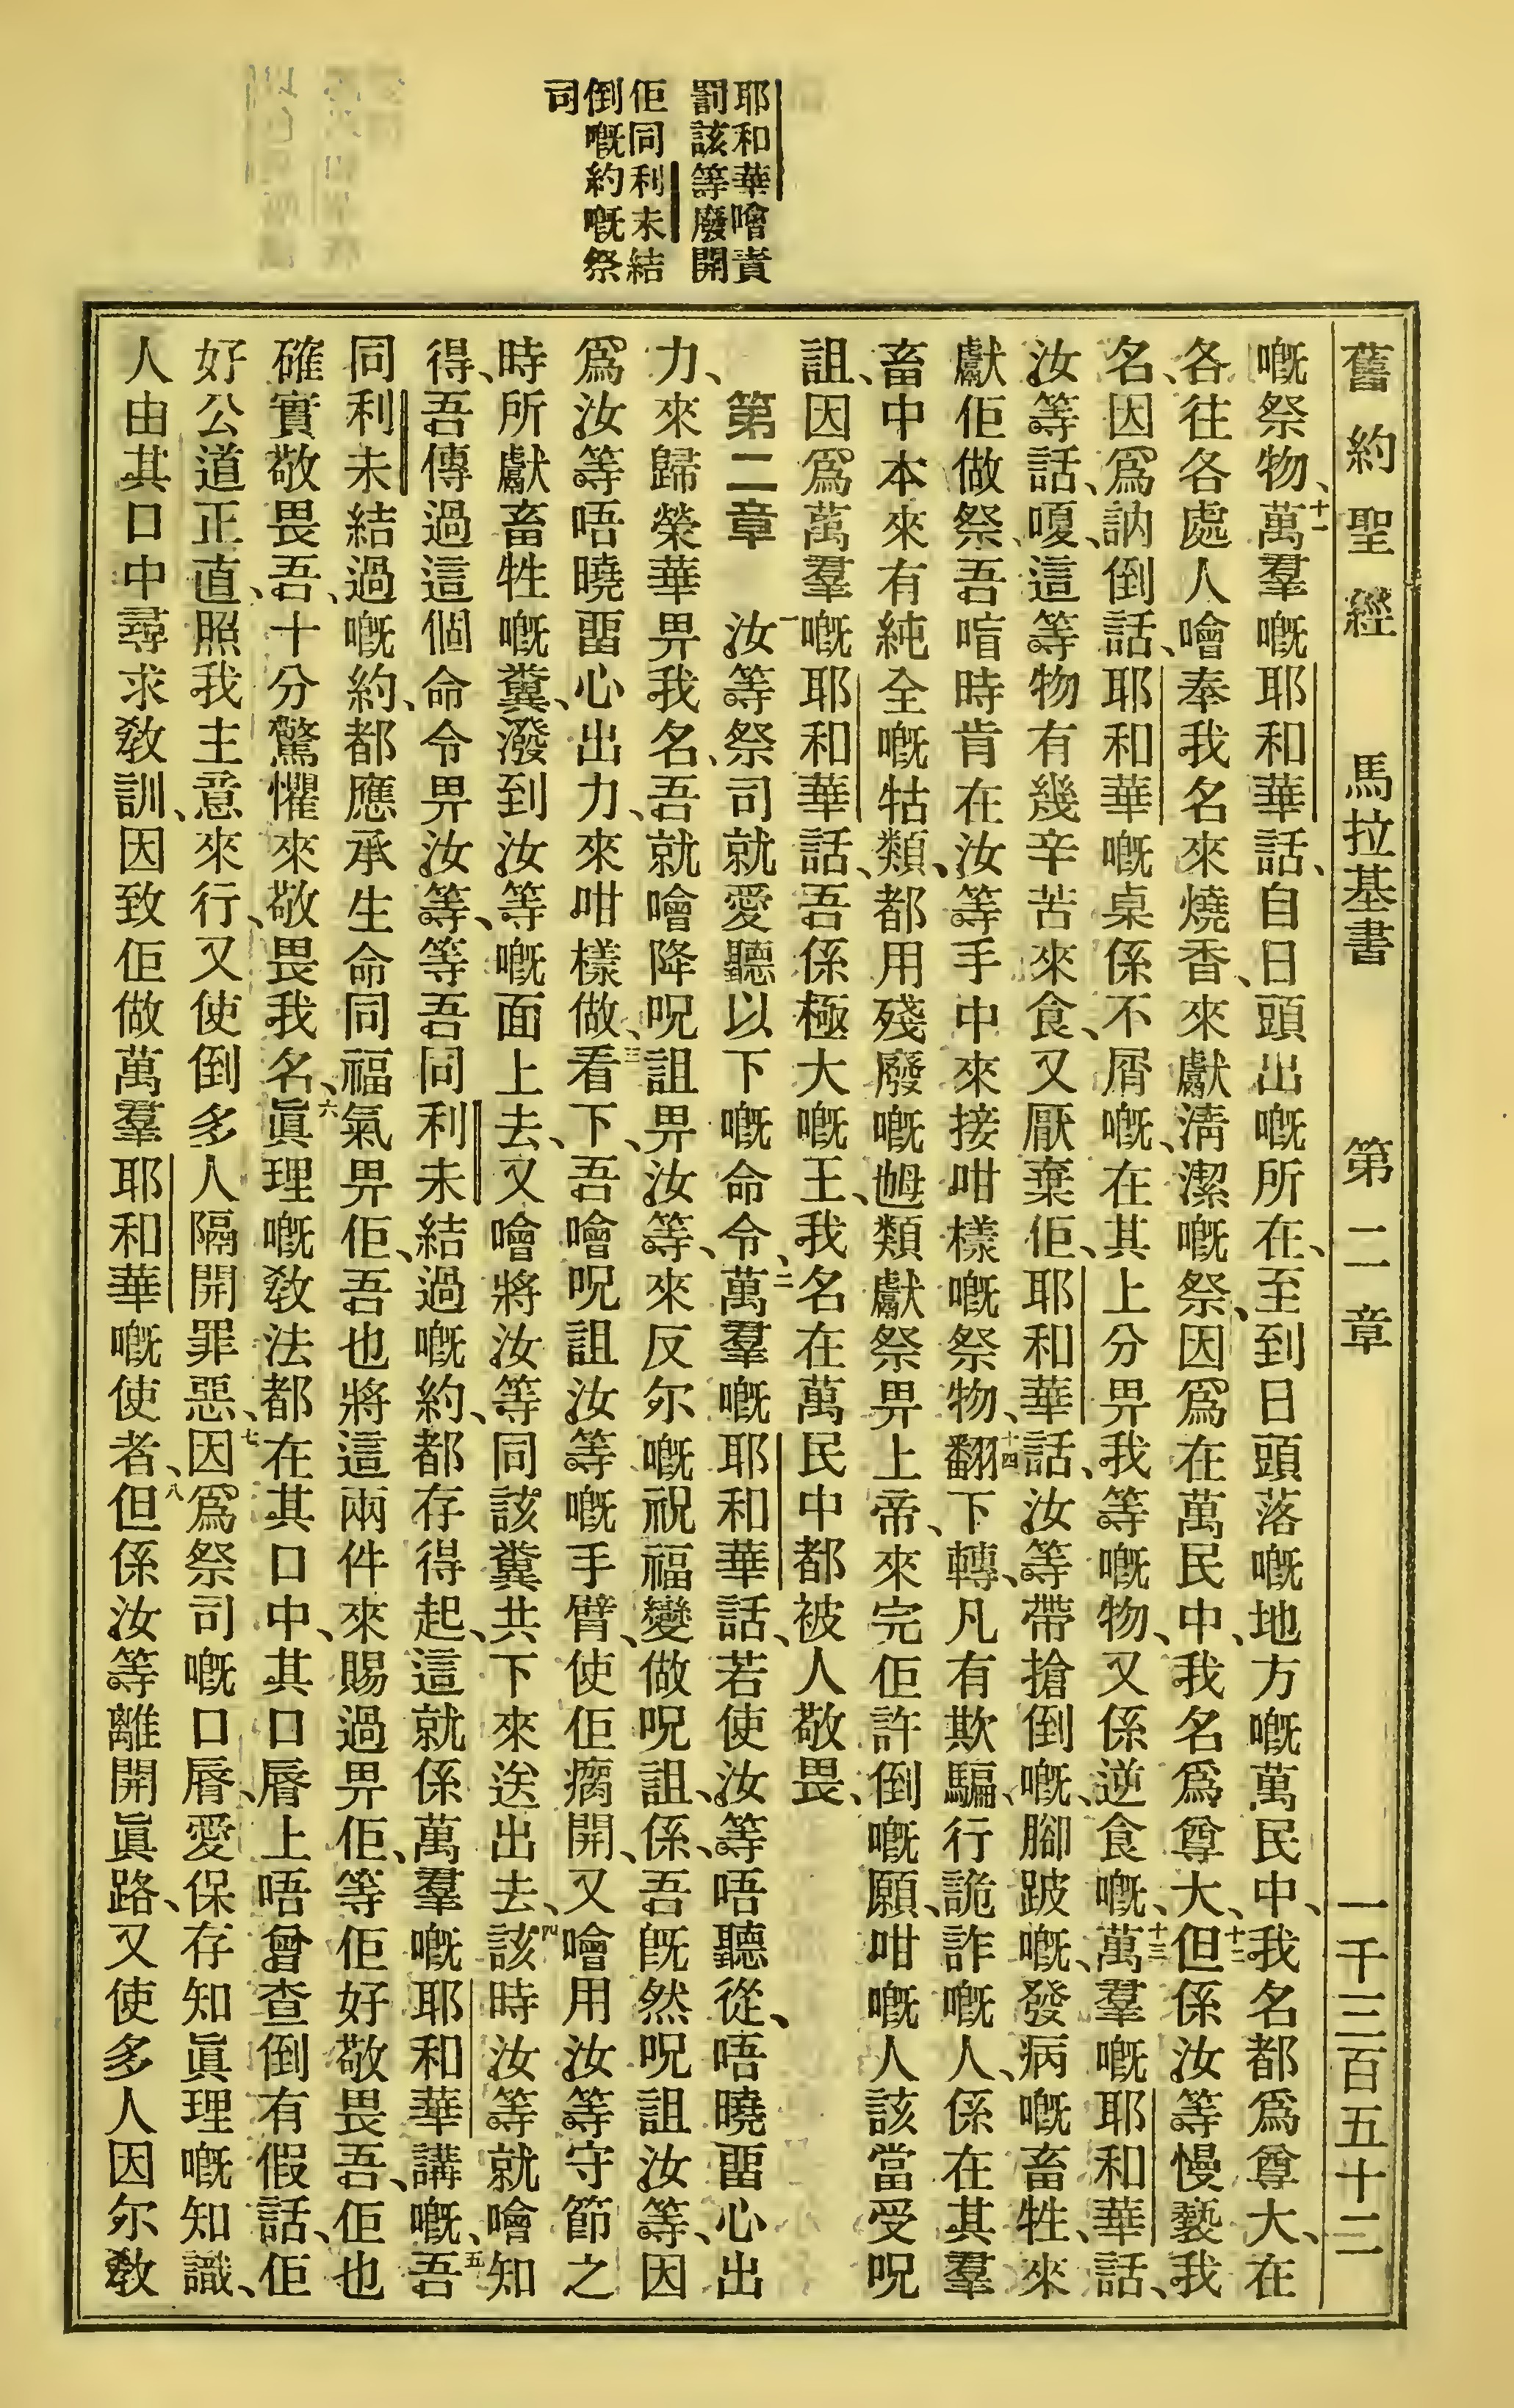 耶和華噲責
罰該等廢開
佢同利未結
倒嘅約嘅祭
司
舊約聖經 馬拉基書 第二章 一千三百五十二
嘅祭物、十一萬羣嘅耶和華話、自日頭出嘅所在、至到日頭落嘅地方嘅萬民中、我名都爲尊大、在
各往各處人噲奉我名來燒香、來獻淸潔嘅祭、因爲在萬民中、我名爲尊大、十二但係汝等慢褻我
名、因爲訥倒話、耶和華嘅桌係不屑嘅、在其上分畀我等嘅物、又係逆食嘅、十三萬羣嘅耶和華話、
汝等話、嗄、這等物有幾辛苦來食、又厭棄佢、耶和華話、汝等帶搶倒嘅、腳跛嘅、發病嘅畜牲、來
獻佢做祭、吾喧時肯在汝等手中來接咁樣嘅祭物、十四翻下轉、凡有欺騙、行詭詐嘅人、係在其羣
畜中本來有純全嘅牯類、都用殘廢嘅乸類獻祭畀上帝、來完佢許倒嘅願、咁嘅人該當受呪
詛、因爲萬羣嘅耶和華話、吾係極大嘅王、我名在萬民中都被人敬畏、
第二章 一汝等祭司就愛聽以下嘅命令、二萬羣嘅耶和華話、若使汝等唔聽從、唔曉畱心出
力、來歸榮華畀我名、吾就噲降呪詛畀汝等、來反尔嘅祝福變做呪詛、係、吾旣然呪詛汝等、因
爲汝等唔曉畱心出力、來咁樣做、三看下、吾噲呪詛汝等嘅手臂、使佢癘開、又噲用汝等守節之
時所獻畜牲嘅糞、潑到汝等嘅面上去、又噲將汝等同該糞共下來送出去、四該時汝等就噲知
得、吾傳過這個命令畀汝等、等吾同利未結過嘅約、都存得起、這就係萬羣嘅耶和華講嘅、五吾
同利未結過嘅約、都應承生命同福氣畀佢、吾也將這兩件來賜過畀佢、等佢好敬畏吾、佢也
確實敬畏吾、十分驚懼來敬畏我名、六眞理嘅敎法都在其口中、其口脣上唔曾查倒有假話、佢
好公道正直、照我主意來行、又使倒多人隔開罪惡、七因爲祭司嘅口脣、愛保存知眞理嘅知識、
人由其口中尋求敎訓、因致佢做萬羣耶和華嘅使者、八但係汝等離開眞路、又使多人因尔敎